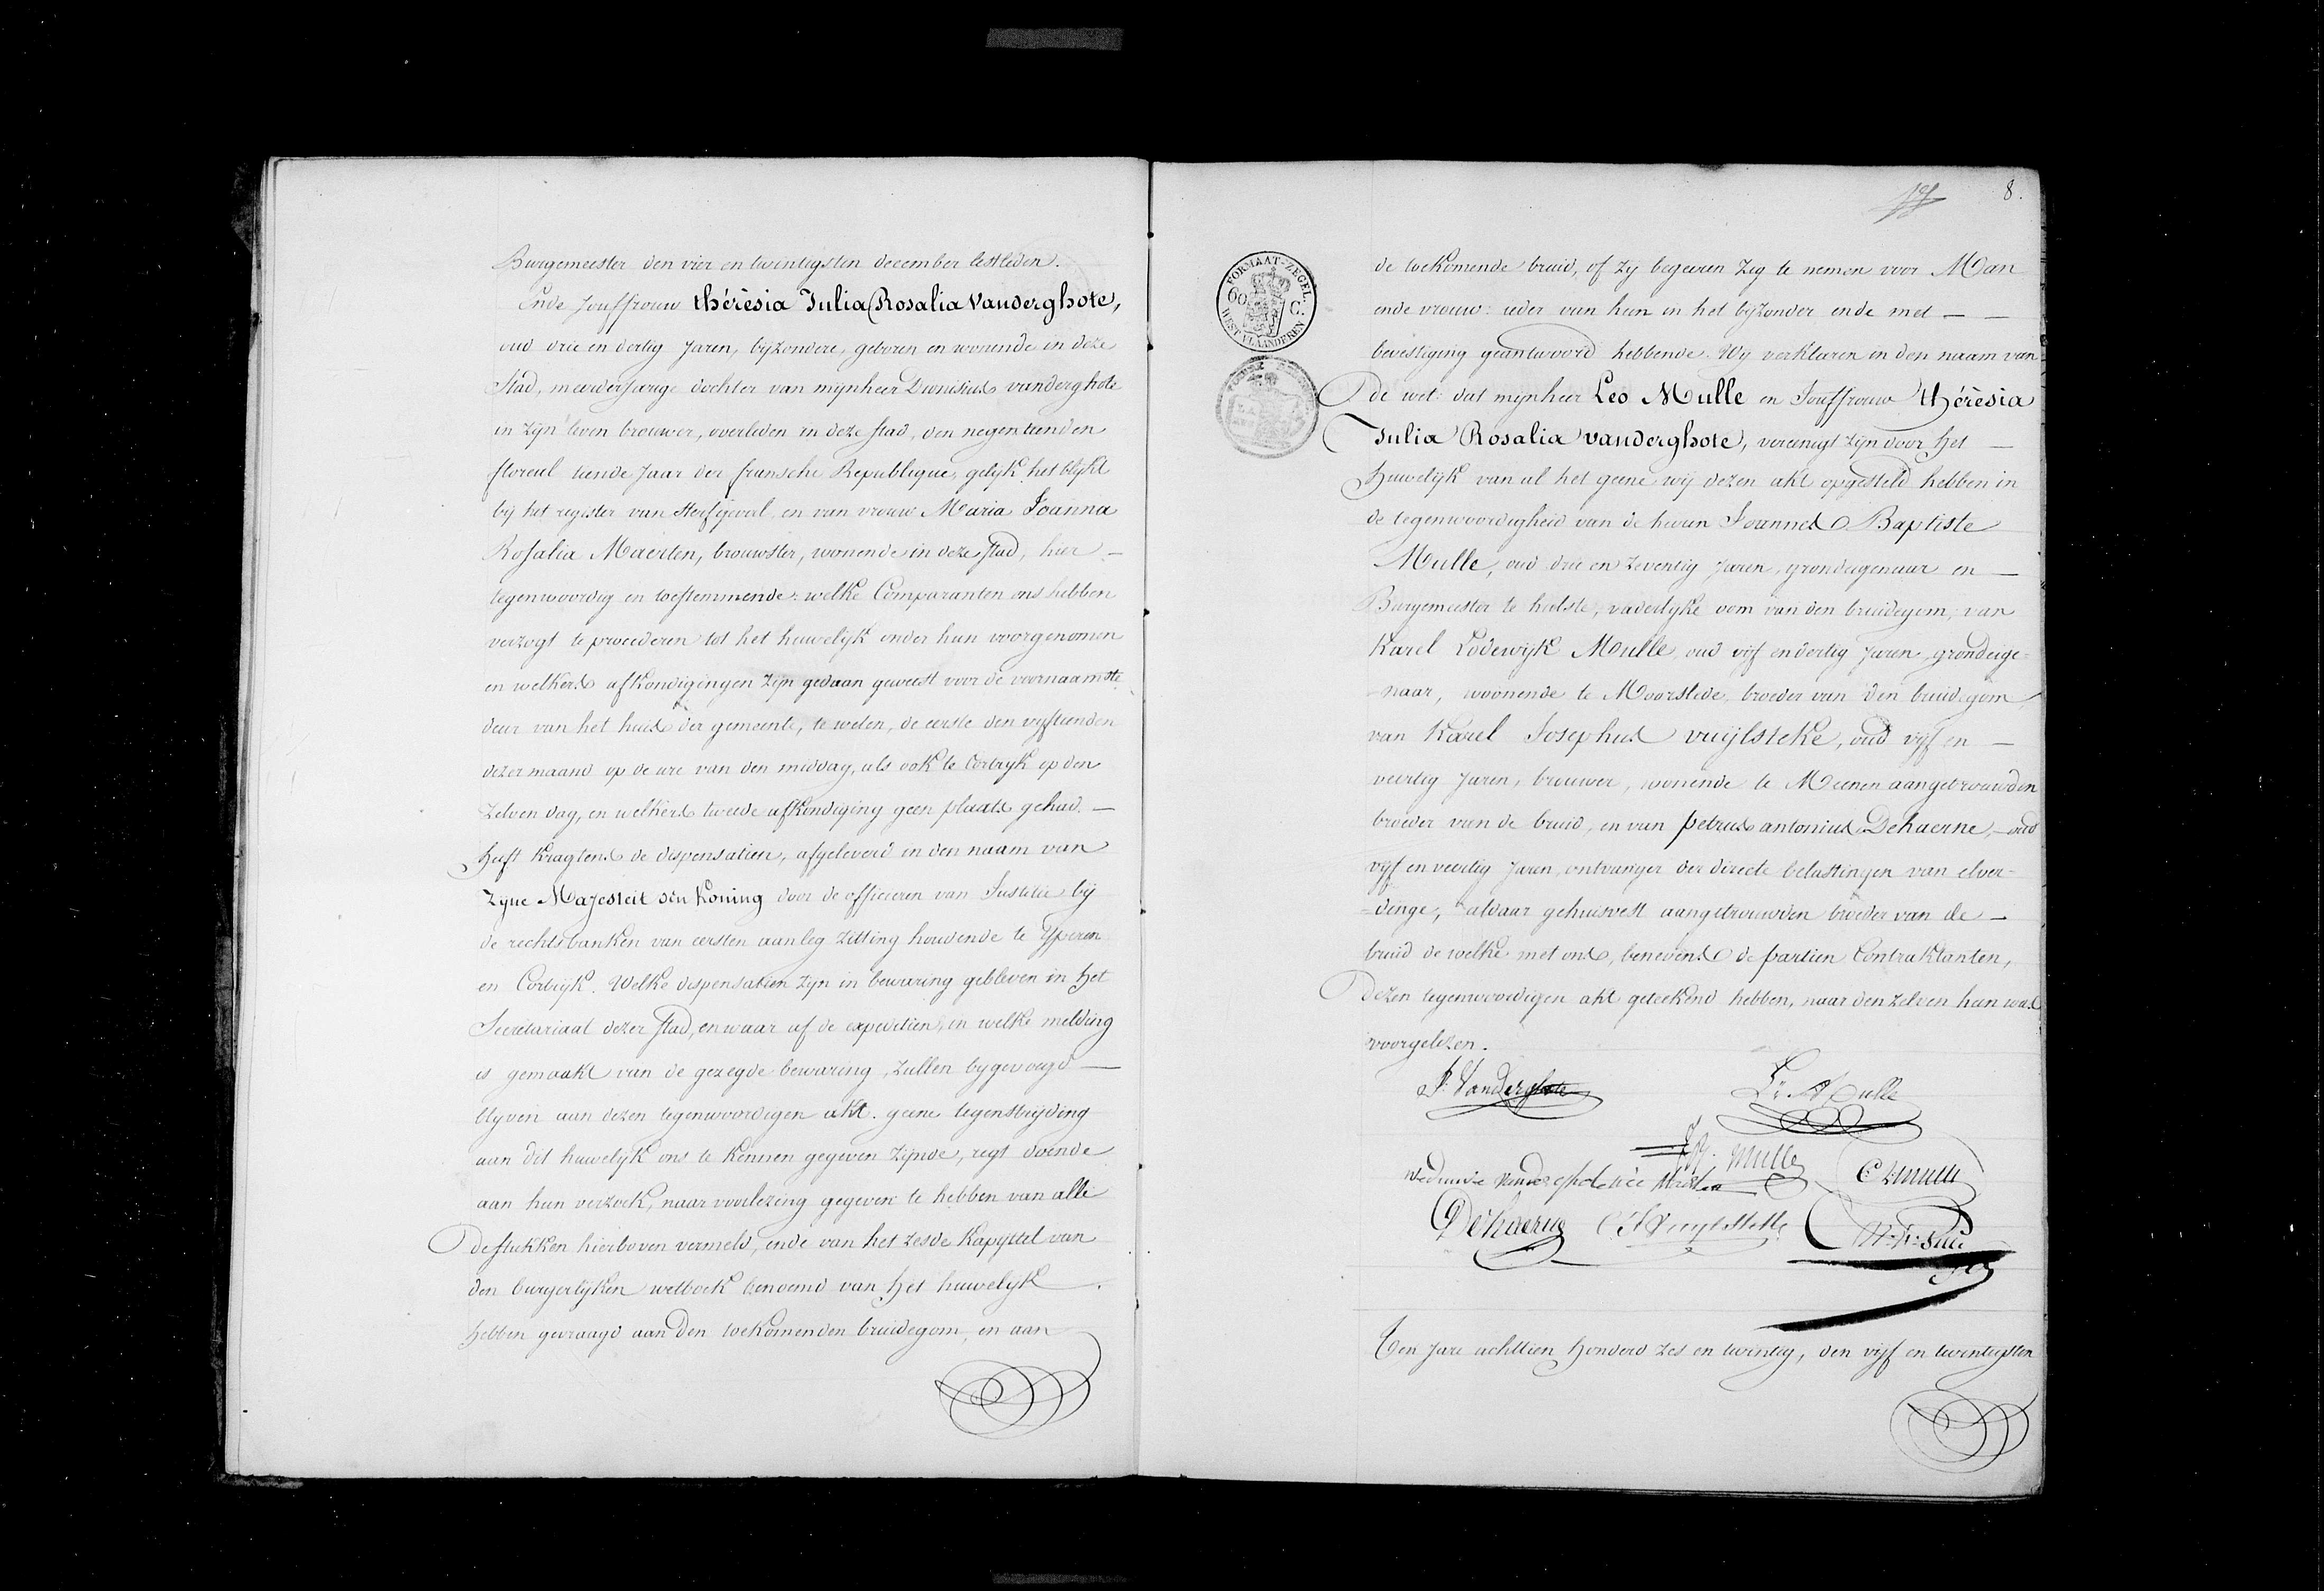 Burgemeester den vier en twintigsten december lestleden.
Ende Jouffrouw thérèsia Julia Rosalia Vanderghote,
oud drie en dertig Jaren, byzondere, geboren en wonende in deze
Stad, meerderjarige dochter van mynheer Dionisius vanderghote
in zyn leven brouwer, overleden in deze stad, den negentienden
floreal tiende Jaar der fransche Republique, gelyk het blykt
by het register van sterfgeval, en van vrouw Maria Joanna
Rosalia Maerten, brouwster, wonende in deze stad, hier —
tegenwoordig en toestemmende: welke Comparanten ons hebben
verzogt te procederen tot het huwelyk onder hun voorgenomen
en welkers afkondigingen zyn gedaan geweest voor de voornaamste
deur van het huis der gemeente, te weten, de eerste den vyftienden
dezer maand op de ure van den middag, als ook te Cortryk op den
zelven dag, en welkers tweede afkondiging geen plaats gehad —
heeft kragtens de dispensatien, afgeleverd in den naam van
Zyne Majesteit den Koning door de officieren van Justitie by
de rechtsbanken van eersten aanleg zitting houdende te Yperen
en Cortryk. Welke dispensatien zyn in bewaring gebleven in het
Secretariaat dezer stad, en waar af de expeditien, in welke melding
is gemaakt van de gezegde bewaring, zullen bygevoegd —
blyven aan dezen tegenwoordigen akt. geene tegenstryding
aan dit huwelyk ons te kennen gegeven zynde, regt doende
aan hun verzoek, naar voorlezing gegeven te hebben van alle
de stukken hierboven vermeld, ende van het zesde kapyttel van
den burgerlyken wetboek benoemd van het huwelyk.
hebben gevraagd aan den toekomenden bruidegom, en aan
8.
FORMAAT-ZEGEL.
60 C.
WEST-VLAANDEREN
de toekomende bruid, of zy begeeren zig te nemen voor Man
ende vrouw: ieder van hun in het byzonder ende met — —
bevestiging geantwoord hebbende. Wy verklaren in den naam van
de wet: dat mynheer Leo Mulle en Jouffrouw thérèsia
Julia Rosalia vanderghote, vereenigt zyn door het —
huwelyk van al het geene wy dezen akt opgesteld hebben in
de tegenwoordigheid van de heeren Joannes Baptiste
Mulle, oud drie en zeventig Jaren, grondeigenaar en —
Burgemeester te hulste, vaderlyke oom van den bruidegom, van
Karel Lodewyk Mulle, oud vyf en dertig Jaren, grondeige=
=naar, woonende te Moorslede, broeder van den bruidegom,
van Karel Josephus vuylsteke, oud vyf en —
veertig Jaren, brouwer, wonende te Meenen aangetrouwden
broeder van de bruid, en van petrus antonius Dehaerne, — oud
vyf en veertig Jaren, ontvanger der directe belastingen van elver=
=dinge, aldaar gehuisvest aangetrouwden broeder van de —
bruid de welke met ons, benevens de partien Contraktanten,
dezen tegenwoordigen akt geteekend hebben, naar den zelven hun was
voorgelezen.
Vanderghote
Ln Mulle
Mulle
Weduwe Vanderghote née
C L Mulle
Dehaerne
C J Vuylsteke
Ten Jare achttien honderd zes en twintig, den vyf en twintigsten